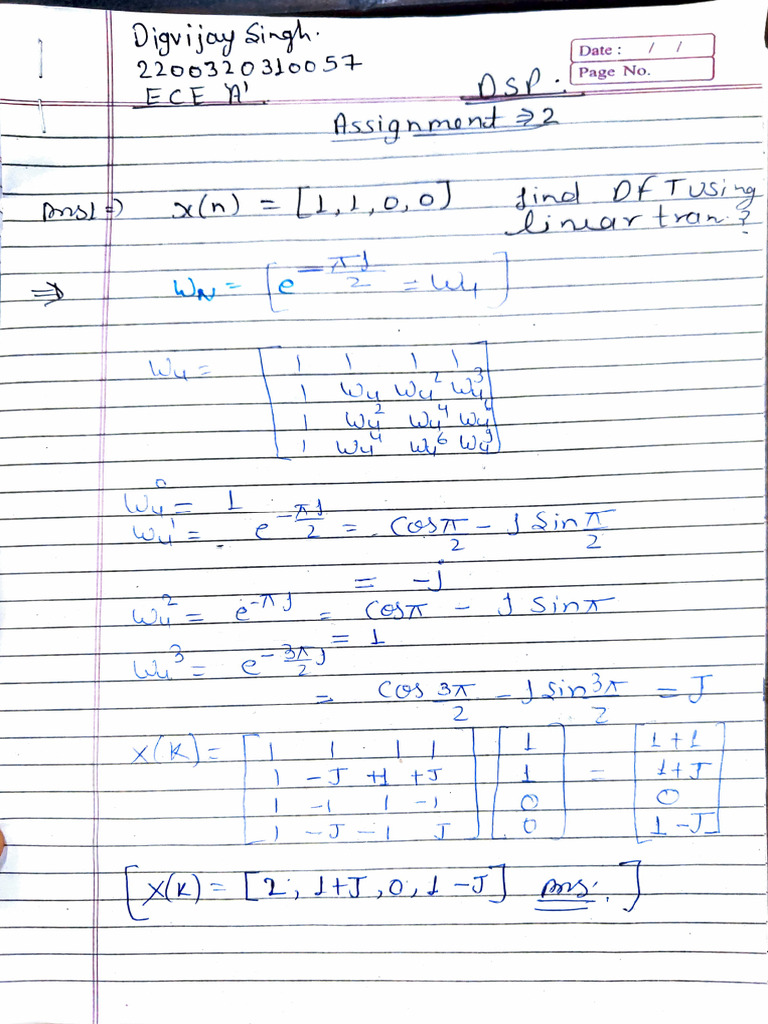 Digvijay Singh.
Date : / /
2200320310057
Page No.
ECE 'A'
DSP.
Assignment ⇒ 2
Ans1 ⇒ x(n) = [1, 1, 0, 0] find DFT using
linear tran.?
⇒ WN = [e^(-πJ/2) = W4]
W4 = [1 1 1 1
1 W4 W4^2 W4^3
1 W4^2 W4^4 W4^6
1 W4^4 W4^6 W4^9]
W4^0 = 1
W4^1 = e^(-πJ/2) = cos π/2 - J sin π/2
= -j
W4^2 = e^(-πJ) = cosπ - J sinπ
= 1
W4^3 = e^(-3π/2 J)
= cos 3π/2 - J sin 3π/2 = J
X(K) = [1 1 1 1 [1 = [1+1
1 -J +1 +J 1 1+J
1 -1 1 -1 0 0
1 -J -1 J] 0] 1-J]
[X(K) = [2, 1+J, 0, 1-J] Ans.]